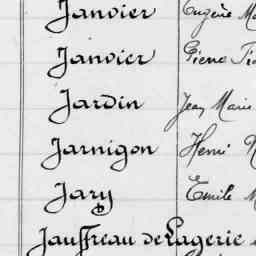 Janvier Eugène
Janvier Pierre
Jardin Jean Marie
Jarnigon Henri
Jary Emile
Jauffreau de Lagerie